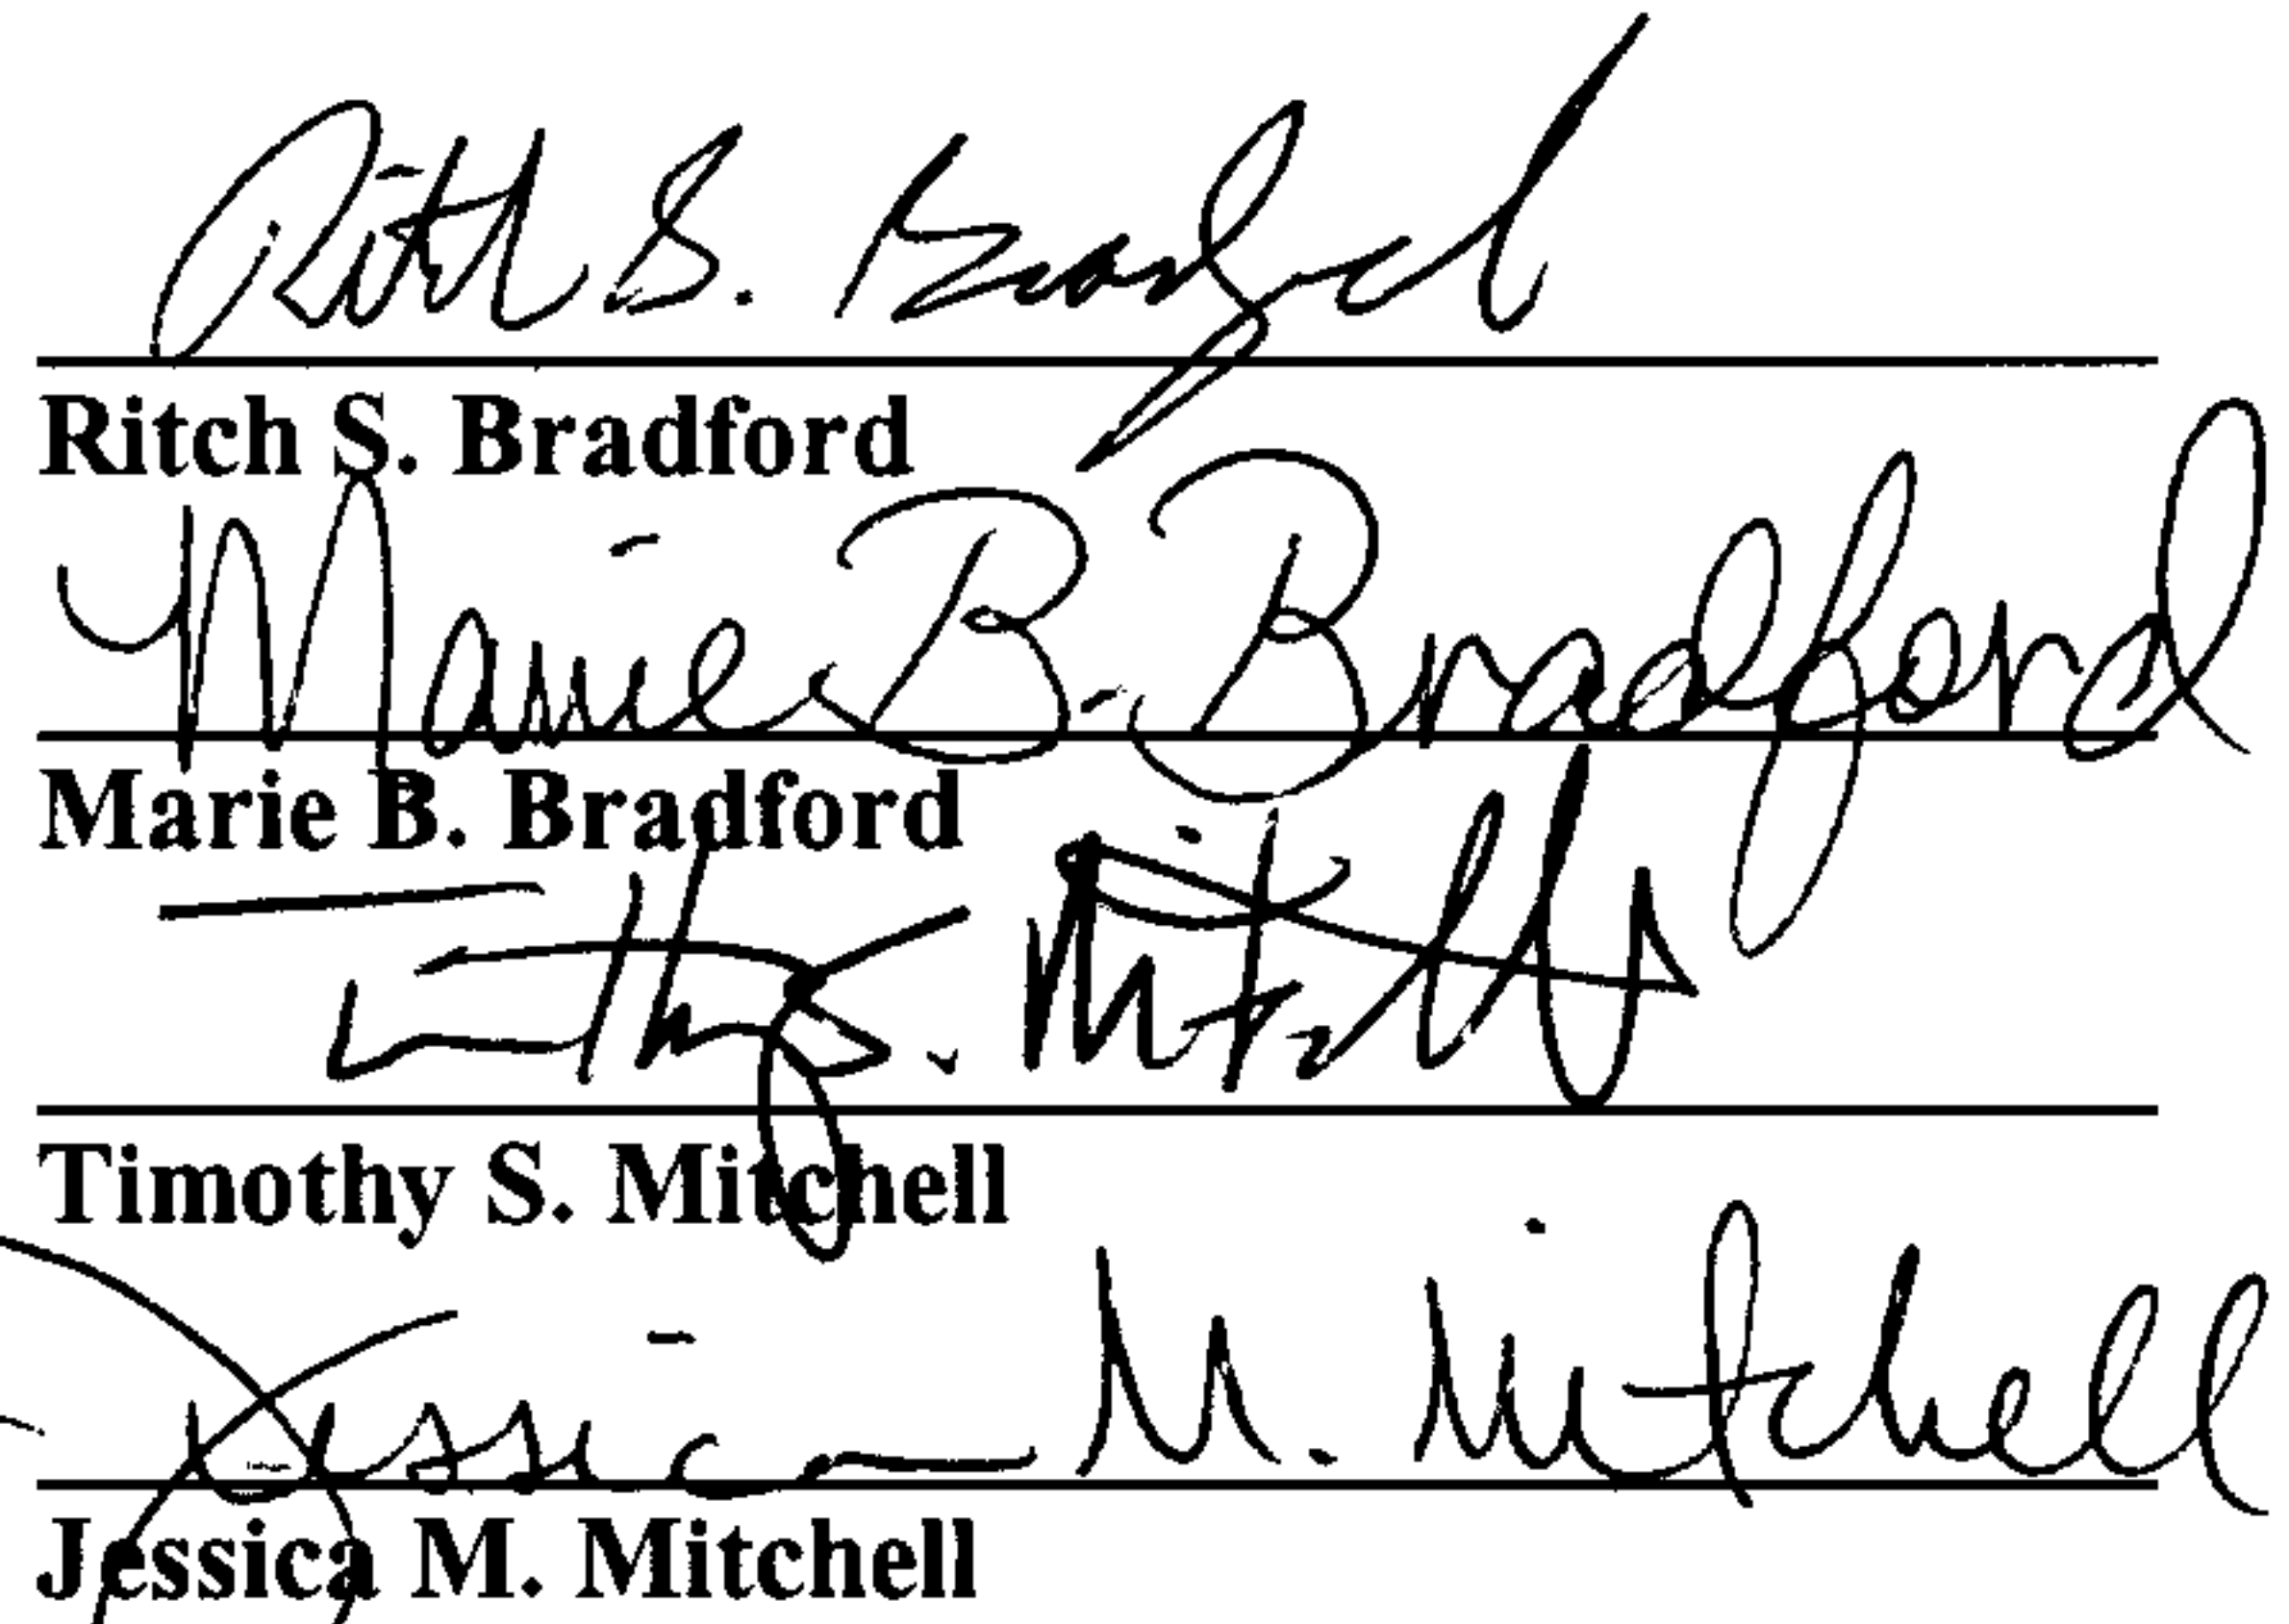 Ritch S. Bradford
Ritch S. Bradford
Marie B. Bradford
Marie B. Bradford
Timothy S. Mitchell
Timothy S. Mitchell
Jessica M. Mitchell
Jessica M. Mitchell